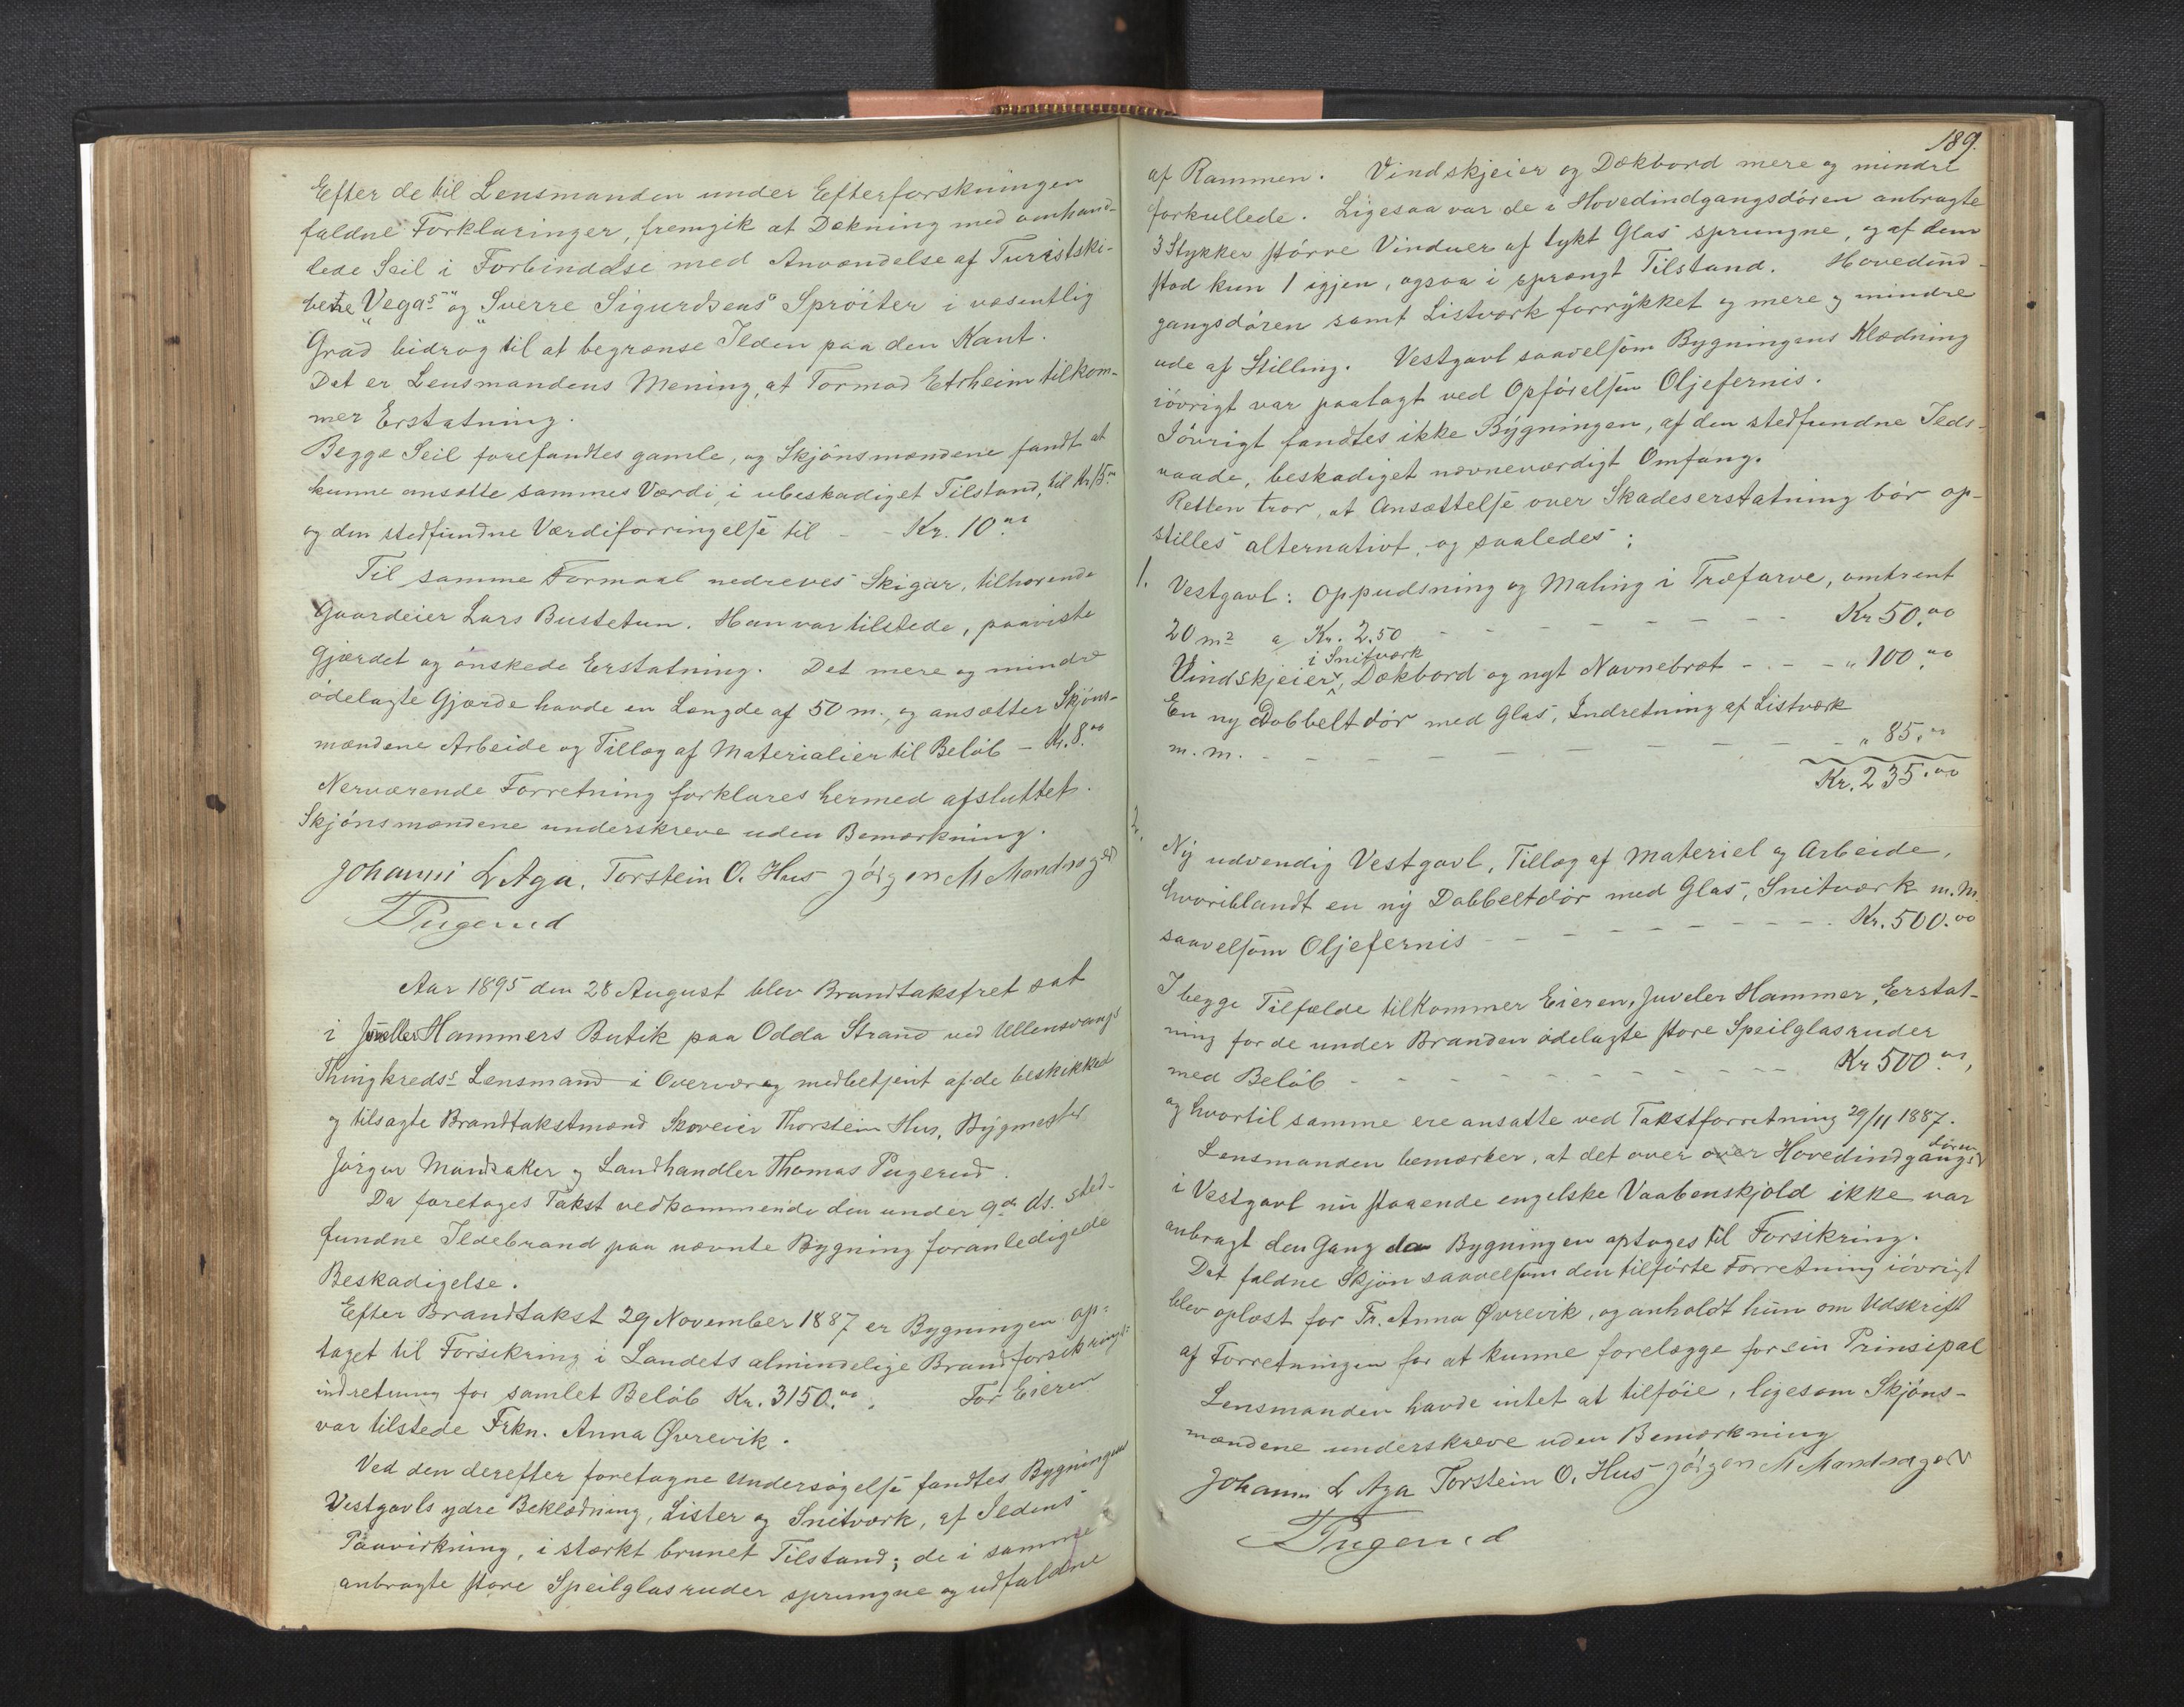 Efter de til Lensmanden under Efterforskningen
faldne Forklaringer, fremgik at Dækning med omhand-
lede Seil i Forbindelse med Anvendelse af Turistski-
bene "Vegas" og "Sverre Sigurdsens" Sprøiter i væsentlig
Grad bidrog til at begrænse Ilden paa den Kant.
Det er Lensmandens Mening, at Tormod Etrheim tilkom-
mer Erstatning.
Begge Seil forefandtes gamle, og Skjønsmændene fandt at
kunne ansætte sammes Værdi, i ubeskadiget Tilstand, til Kr. 15.00
og den stedfundne Værdiforringelse til - - Kr. 10.00
Til samme Formaal nedreves Skigar, tilhørende
Gaardeier Lars Bustetun. Han var tilstede, paaviste
Gjærdet og ønskede Erstatning. Det mere og mindre
ødelagte Gjærde havde en Længde af 50 m., og ansætter Skjøns-
mændene Arbeide og Tillæg af Materialier til Beløb - Kr. 8.00
Nærværende Forretning forklares hermed afsluttet.
Skjønsmændene underskreve uden Bemærkning.
Johannes L Aga. Torstein O. Hus Jørgen M Mandsager
T Pugerud
Aar 1895 den 28 August blev Brandtakstret sat
i Juveller Hammers Butik paa Odda Strand ved Ullensvangs
Thingkreds's Lensmand i Overvær og medbetjent af de beskikked
og tilsagte Brandtakstmænd Skoveier Thorstein Hus, Bygmester
Jørgen Mandsaker og Landhandler Thomas Pugerud.
Da foretoges Takst vedkommende den under 9de ds. sted-
fundne Ildebrand paa nævnte Bygning foranledigede
Beskadigelse.
Efter Brandtakst 29 November 1887 er Bygningen op-
taget til Forsikring i Landets almindelige Brandforsikrings-
indretning for samlet Beløb Kr. 3150.00. For Eieren
var tilstede Frkn. Anna Øvrevik.
Ved den derefter foretagne Undersøgelse fandtes Bygningens
Vestgavls ydre Beklædning, Lister og Snitværk, af Ildens
Paavirkning, i stærkt brunet Tilstand; de i samme
anbragte store Speilglasruder sprungne og udfaldne
189.
af Rammen. Vindskjeier og Dækbord mere og mindre
forkullede. Ligesaa var de i Hovedindgangsdøren anbragte
3 Stykker større Vinduer af tykt Glas sprungne, og af dem
stod kun 1 igjen, ogsaa i sprængt Tilstand. Hovedind-
gangsdøren samt Listværk forrykket og mere og mindre
ude af Stilling. Vestgavl saavelsom Bygningens Klædning
iøvrigt var paalagt ved Opførelsen Oljefernis.
Iøvrigt fandtes ikke Bygningen, af den stedfundne Ilds-
vaade, beskadiget nævneværdigt Omfang.
Retten tror, at Ansættelse over Skadeserstatning bør op-
stilles alternativt, og saaledes:
1. Vestgavl: Oppudsning og Maling i Træfarve, omtrent
20 m2 a Kr. 2.50 - - - - - - - - Kr 50.00
i Snitværk
Vindskjeier, Dækbord og nyt Navnebræt - - - - " 100.00
En ny Dobbeltdør med Glas, Indretning af Listværk
m. m. - - - - - - - - - - " 85.00
Kr. 235.00
2.
Ny udvendig Vestgavl, Tillæg af Materiel og Arbeide,
hvoriblandt en ny Dobbeltdør med Glas, Snitværk m. m.
saavelsom Oljefernis - - - - - - - - - Kr. 500.00
I begge Tilfælde tilkommer Eieren, Juveler Hammer, Erstat-
ning for de under Branden ødelagte store Speilglasruder
med Beløb - - - - - - - - - - Kr 500.00,
og hvortil samme ere ansatte ved Takstforretning 29/11 1887.
Lensmanden bemærker, at det over over Hovedindgangs
døren
i Vestgavl nu staaende engelske Vaabenskjold ikke var
anbragt den Gang da Bygningen optoges til Forsikring.
Det faldne Skjøn saavelsom den tilførte Forretning iøvrigt
blev oplæst for Fr. Anna Øvrevik, og anholdt hun om Udskrift
af Forretningen for at kunne forelægge for sin Prinsipal
Lensmanden havde intet at tilføie, ligesom Skjøns-
mændene underskreve uden Bemærkning
Johannes L Aga Torstein O. Hus Jørgen M Mandsager
T Pugerud